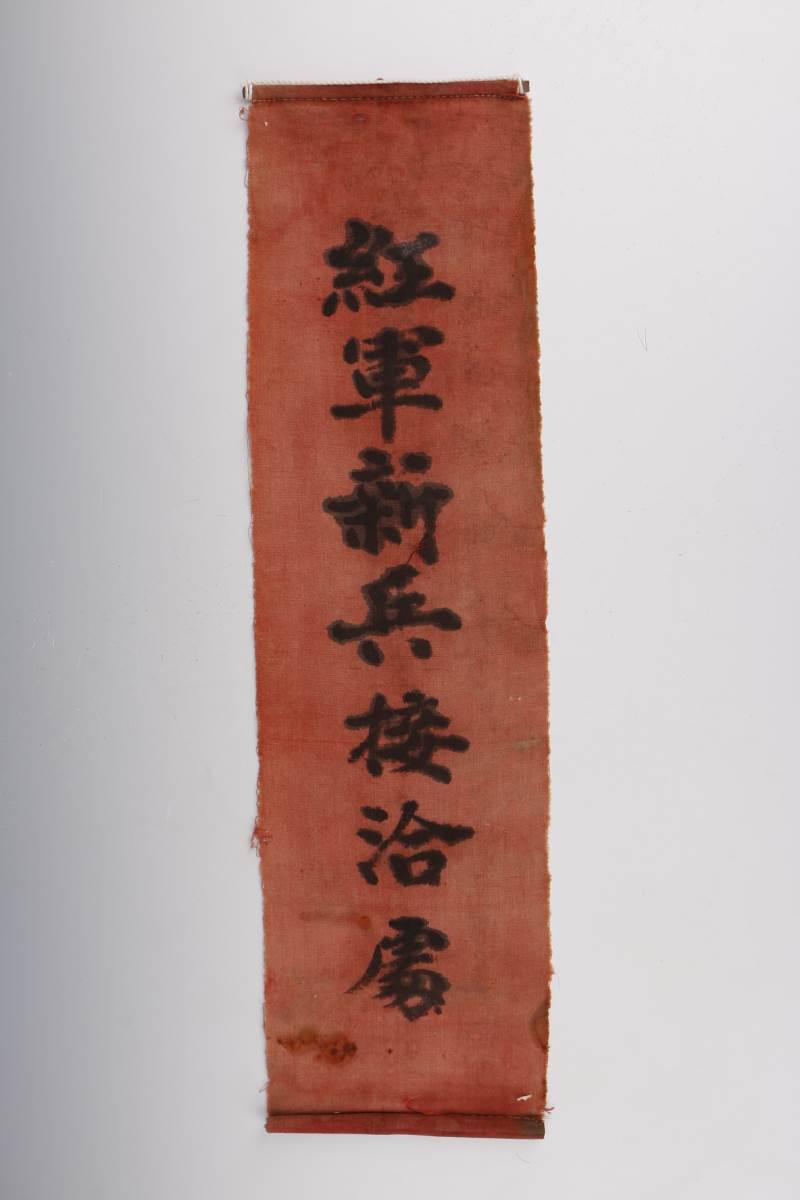 紅軍新兵接洽處